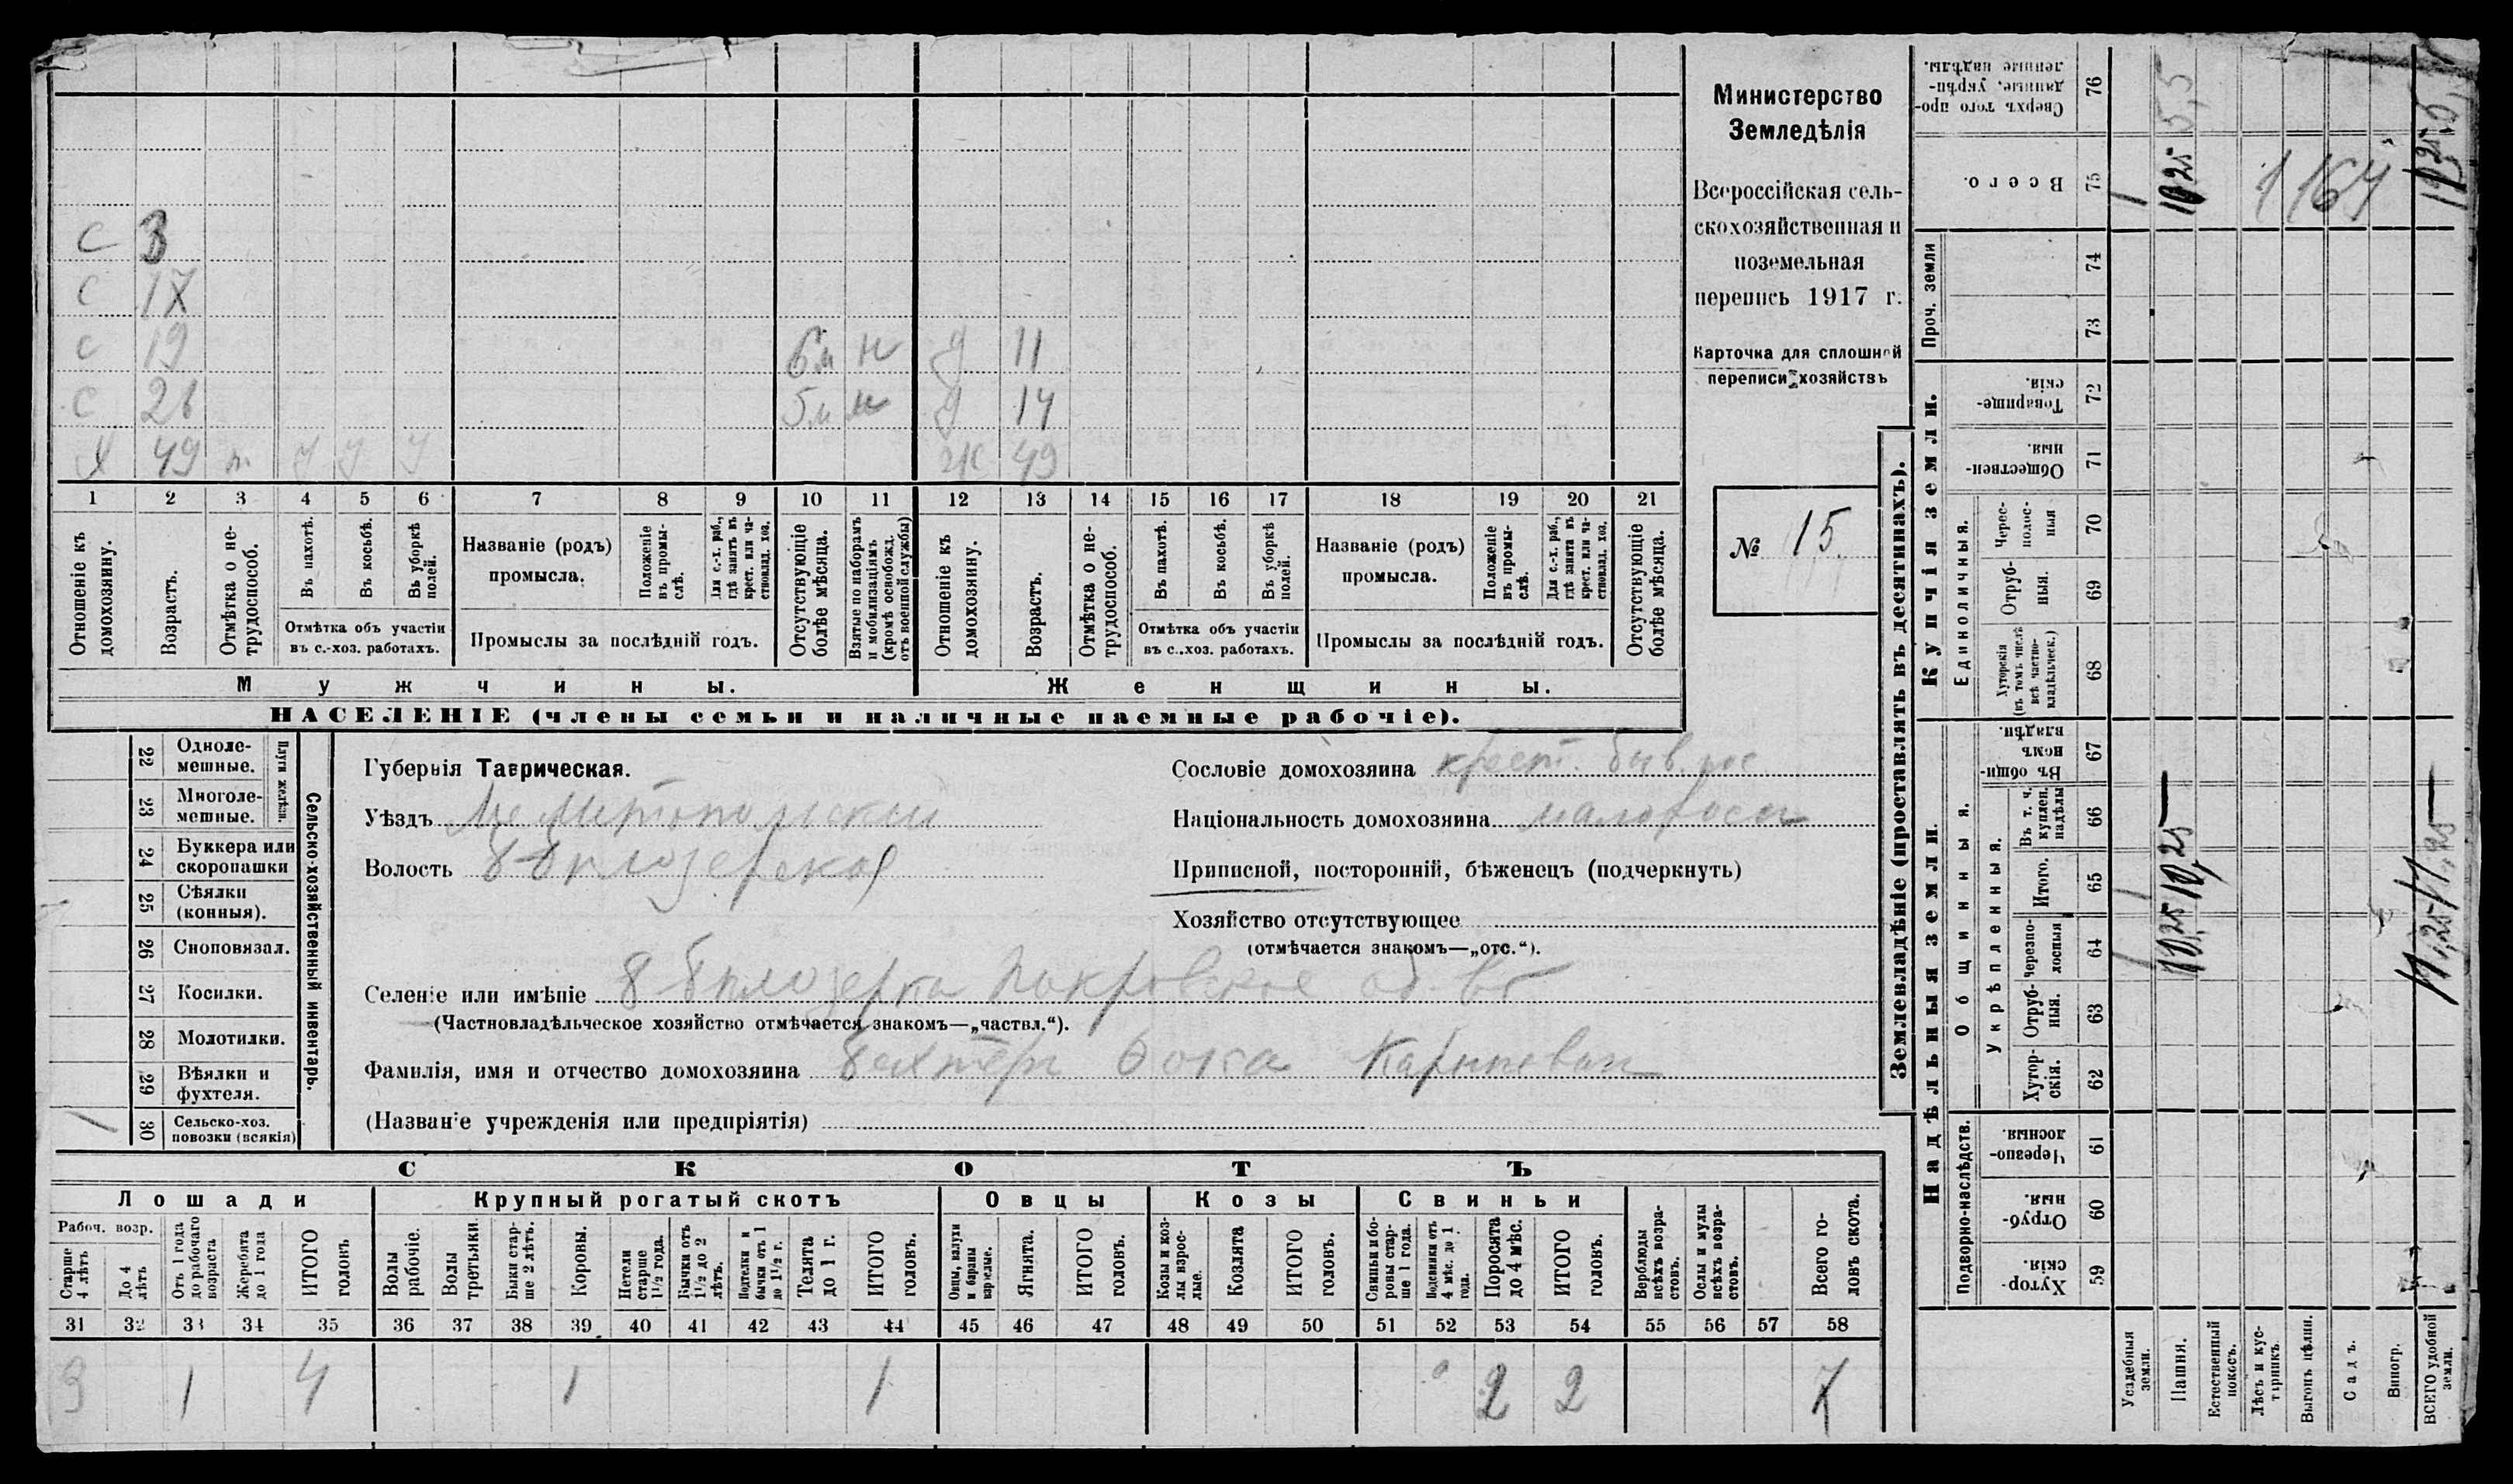 Министерство
Земледѣлія
Всероссійская сель-
скохозяйственная и
поземельная
перепись 1917 г.
Карточка для сплошной
переписи хозяйствъ
№ 15.
С 3
С 17
С 19 6м н д 11
С 26 5м н д 14
Х 49 т У У У Ж 49
1 2 3 4 5 6 7 8 9 10 11 12 13 14 15 16 17 18 19 20 21
Отношеніе къ домохозяину.
Возрастъ.
Отмѣтка о не-трудоспособ.
Въ пахотѣ.
Въ косьбѣ.
Въ уборкѣ полей.
Отмѣтка объ участіи
въ с.-хоз. работахъ.
Названіе (родъ)
промысла.
Положеніе въ промы-слѣ.
Для с.-х. раб., гдѣ занятъ въ крест. или ча-стновлад. хоз.
Промыслы за послѣдній годъ.
Отсутствующіе болѣе мѣсяца.
Взятые по наборамъ и мобилизаціямъ (кромѣ освобожд. отъ военной службы)
Отношеніе къ домохозяину.
Возрастъ.
Отмѣтка о не-трудоспособ.
Въ пахотѣ.
Въ косьбѣ.
Въ уборкѣ полей.
Отмѣтка объ участіи
въ с..хоз. работахъ.
Названіе (родъ)
промысла.
Положеніе въ промы-слѣ.
Для с.-х. раб., гдѣ занята въ крест. или ча-стновлад. хоз.
Промыслы за послѣдній годъ.
Отсутствующіе болѣе мѣсяца.
Мужчины.
Женщины.
НАСЕЛЕНІЕ (члены семьи и наличные наемные рабочіе).
Сельско-хозяйственный инвентарь.
Плуги желѣзн.
22 Одноле-мешные.
23 Многоле-мешные.
24 Буккера или скоропашки
25 Сѣялки (конныя).
26 Сноповязал.
27 Косилки.
28 Молотилки.
29 Вѣялки и фухтеля.
30 Сельско-хоз. повозки (всякія) 1
Губернія Таврическая.
Уѣздъ Мелитопольскій
Волость Б Бѣлозерская
Селеніе или имѣніе Б Бѣлозерка Покровское об-во
(Частновладѣльческое хозяйство отмѣчается знакомъ—„частвл.“).
Фамилія, имя и отчество домохозяина Бехтерь Фока Карпович
(Названіе учрежденія или предпріятія)
Сословіе домохозяина крест. быв. гос
Національность домохозяина малоросс
Приписной, посторонній, бѣженецъ (подчеркнуть)
Хозяйство отсутствующее
(отмѣчается знакомъ—„отс.“).
СКОТЪ
Лошади
Крупный рогатый скотъ
Овцы
Козы
Свиньи
Рабоч. возр.
Старше 4 лѣтъ
До 4 лѣтъ
Отъ 1 года до рабочаго возраста
Жеребята до 1 года
ИТОГО головъ
Волы рабочіе.
Волы третьяки.
Быки стар-ше 2 лѣтъ.
Коровы.
Нетели старше 1½ года.
Бычки отъ 1½ до 2 лѣтъ.
Подтелки и бычки отъ 1 до 1½ г.
Телята до 1 г.
ИТОГО головъ.
Овцы, валухи и бараны взрослые.
Ягнята.
ИТОГО головъ.
Козы и коз-лы взрос-лые.
Козлята
ИТОГО головъ.
Свиньи и бо-ровы стар-ше 1 года.
Подсвинки отъ 4 мѣс. до 1 года.
Поросята до 4 мѣс.
ИТОГО головъ.
Верблюды всѣхъ возра-стовъ.
Ослы и мулы всѣхъ возра-стовъ.
Всего го-ловъ скота.
31 32 33 34 35 36 37 38 39 40 41 42 43 44 45 46 47 48 49 50 51 52 53 54 55 56 57 58
3 1 4 1 1 2 2 7
Землевладѣніе (проставлять въ десятинахъ).
Купчія земли.
Надѣльныя земли.
Сверхъ того про-данные, укрѣп-ленные надѣлы. 76
Всего. 75
Проч. земли
74
73
Товарище-скія. 72
Обществен-ныя 71
Единоличныя.
Черес-полос-ныя 70
Отруб-ныя. 69
Хуторскія (въ томъ числѣ всѣ частно-владѣльческ.) 68
Общинныя.
Въ общи-номъ владѣн. 67
Укрѣпленныя.
Въ т. ч. куплен. надѣлы 66
Итого. 65
Черезпо-лосныя 64
Отруб-ныя. 63
Хутор-скія. 62
Подворно-наслѣдств.
Черезпо-лосныя. 61
Отруб-ныя. 60
Хутор-скія. 59
Усадебныя земли. 1 1 1
Пашня. 10,25 10,25 10,25 5,5
Естественный покосъ.
Лѣсъ и кус-тарникъ.
Выгонъ цѣлин.
Садъ.
Виногр.
ВСЕГО удобной земли. 11,25 11,25 11,25 5,5
1164